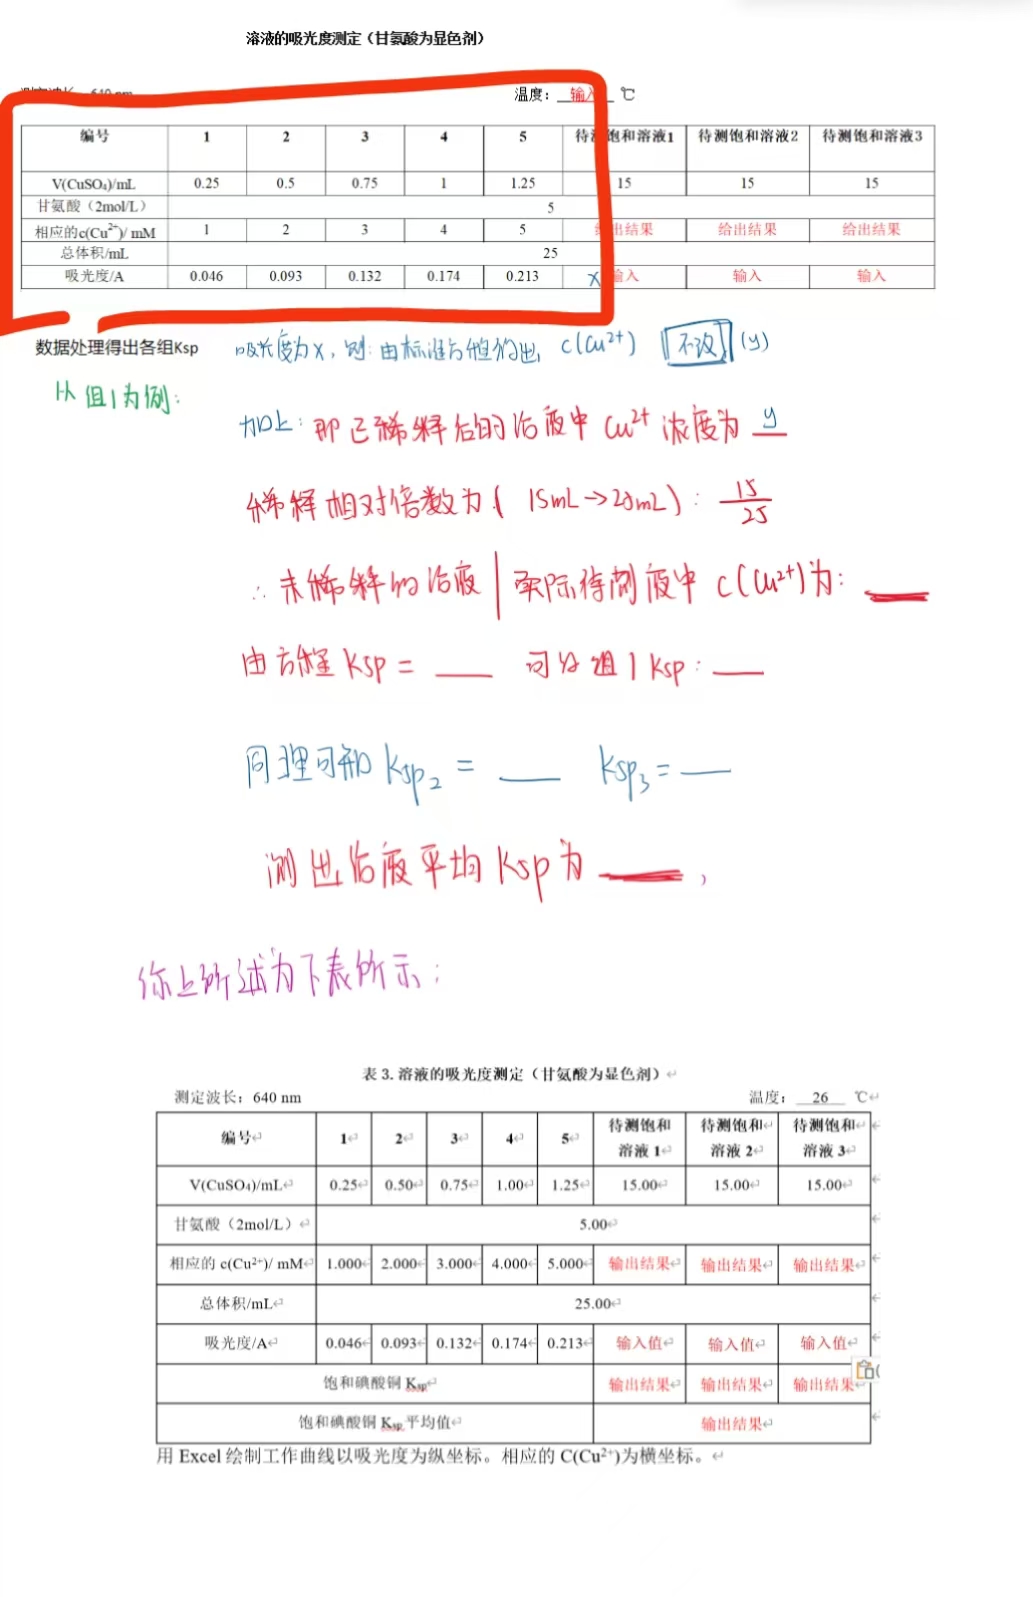 溶液的吸光度测定（甘氨酸为显色剂）
温度： 输入 ℃
编号 1 2 3 4 5 待测饱和溶液1 待测饱和溶液2 待测饱和溶液3
V(CuSO₄)/mL 0.25 0.5 0.75 1 1.25 15 15 15
甘氨酸（2mol/L） 5
相应的c(Cu²⁺)/ mM 1 2 3 4 5 给出结果 给出结果 给出结果
总体积/mL 25
吸光度/A 0.046 0.093 0.132 0.174 0.213 x 输入 输入 输入
数据处理得出各组Ksp 吸光度为x, 则: 由标准方程得出 c(Cu²⁺) 不改 (y)
从组1为例:
加上: 即已稀释后的溶液中 Cu²⁺ 浓度为 y
稀释相对倍数为( 15mL→25mL): 15/25
∴ 未稀释的溶液 | 实际待测液中 c(Cu²⁺)为:
由方程 Ksp = 可知组1 Ksp:
同理可知 Ksp₂ = Ksp₃ =
测出溶液平均 Ksp 为 ,
上所述为下表所示:
表 3. 溶液的吸光度测定（甘氨酸为显色剂）
测定波长：640 nm 温度： 26 ℃
编号 1 2 3 4 5 待测饱和溶液 1 待测饱和溶液 2 待测饱和溶液 3
V(CuSO₄)/mL 0.25 0.50 0.75 1.00 1.25 15.00 15.00 15.00
甘氨酸（2mol/L） 5.00
相应的 c(Cu²⁺)/ mM 1.000 2.000 3.000 4.000 5.000 输出结果 输出结果 输出结果
总体积/mL 25.00
吸光度/A 0.046 0.093 0.132 0.174 0.213 输入值 输入值 输入值
饱和碘酸铜 Ksp 输出结果 输出结果 输出结果
饱和碘酸铜 Ksp 平均值 输出结果
用 Excel 绘制工作曲线以吸光度为纵坐标。相应的 C(Cu²⁺)为横坐标。